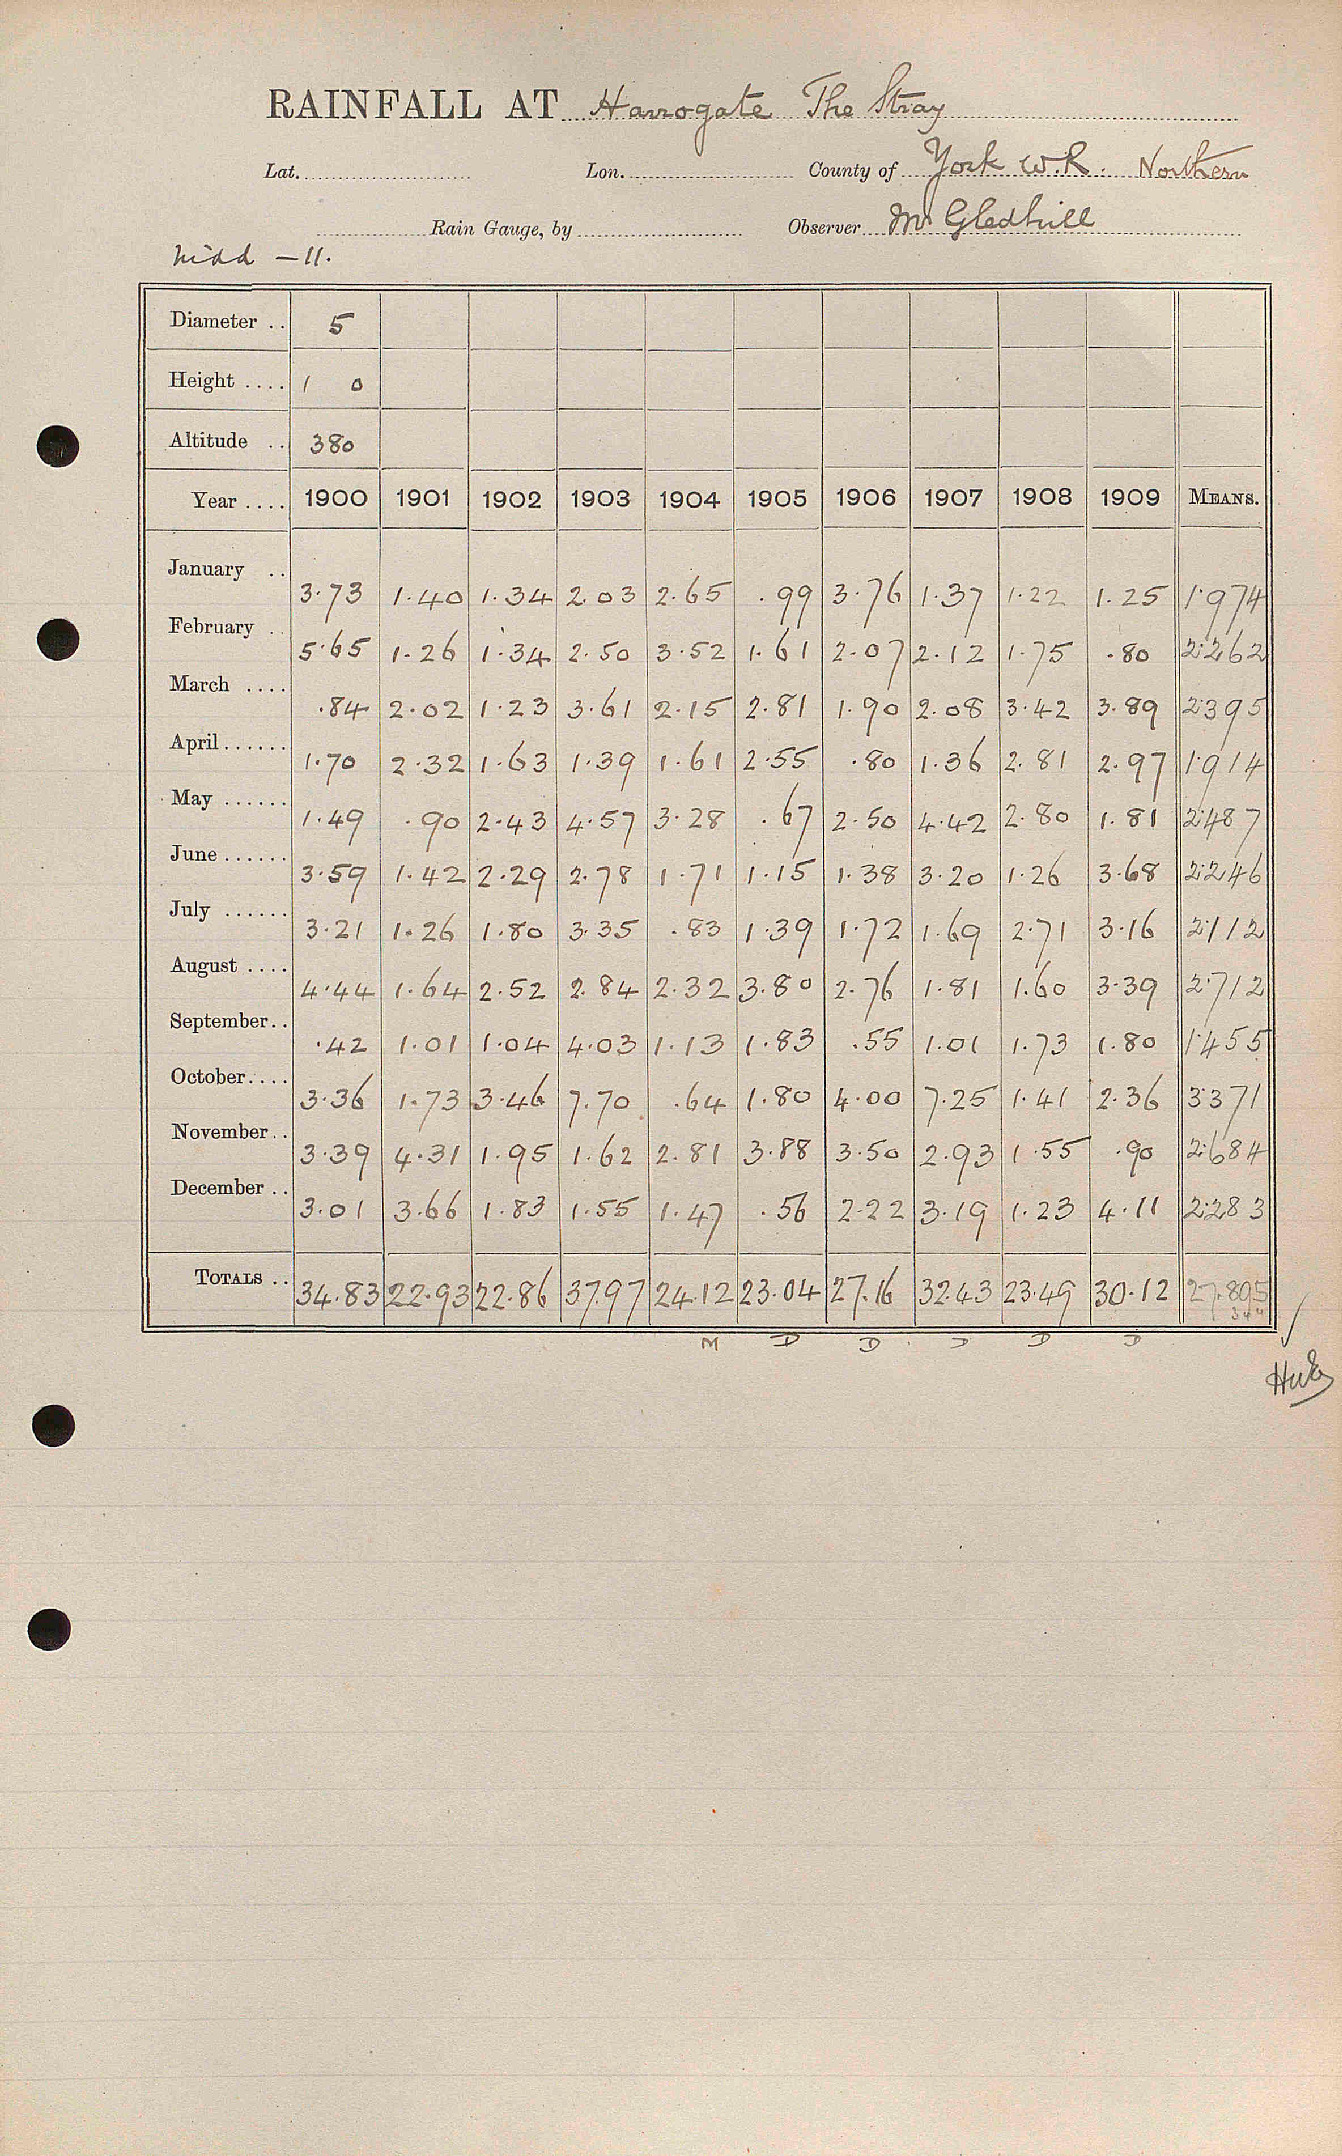 RAINFALL AT Harrogate The Stray
Lat. Lon. County of York W.R. Northern
Rain Gauge, by Observer Mr Gledhill
Nidd - 11.
Diameter .. 5
Height .... 1 0
Altitude .. 380
Year .... 1900 1901 1902 1903 1904 1905 1906 1907 1908 1909 MEANS.
January .. 3.73 1.40 1.34 2.03 2.65 .99 3.76 1.37 1.22 1.25 1.974
February .. 5.65 1.26 1.34 2.50 3.52 1.61 2.07 2.12 1.75 .80 2.262
March .... .84 2.02 1.23 3.61 2.15 2.81 1.90 2.08 3.42 3.89 2.395
April ...... 1.70 2.32 1.63 1.39 1.61 2.55 .80 1.36 2.81 2.97 1.914
May ...... 1.49 .90 2.43 4.57 3.28 .67 2.50 4.42 2.80 1.81 2.487
June ...... 3.59 1.42 2.29 2.78 1.71 1.15 1.38 3.20 1.26 3.68 2.246
July ...... 3.21 1.26 1.80 3.35 .83 1.39 1.72 1.69 2.71 3.16 2.112
August .... 4.44 1.64 2.52 2.84 2.32 3.80 2.76 1.81 1.60 3.39 2.712
September .. .42 1.01 1.04 4.03 1.13 1.83 .55 1.01 1.73 1.80 1.455
October .... 3.36 1.73 3.46 7.70 .64 1.80 4.00 7.25 1.41 2.36 3.371
November .. 3.39 4.31 1.95 1.62 2.81 3.88 3.50 2.93 1.55 .90 2.684
December .. 3.01 3.66 1.83 1.55 1.47 .56 2.22 3.19 1.23 4.11 2.283
TOTALS .. 34.83 22.93 22.86 37.97 24.12 23.04 27.16 32.43 23.49 30.12 27.895
M D D D D D